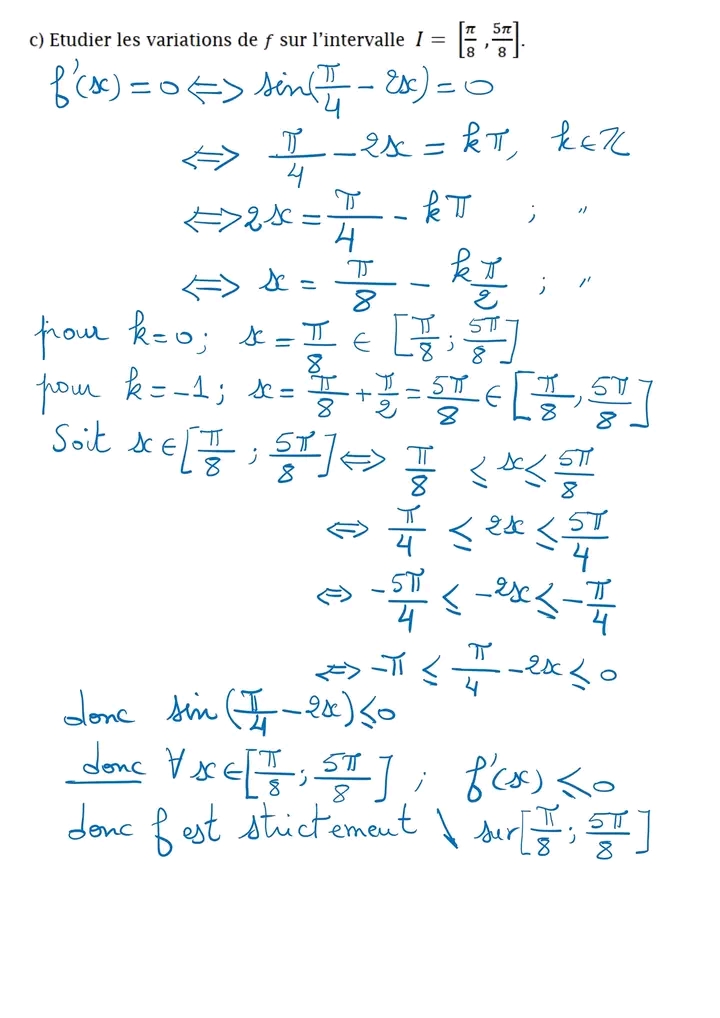 c) Etudier les variations de f sur l'intervalle I = [π/8 , 5π/8].
f'(x) = 0 <=> sin(π/4 - 2x) = 0
<=> π/4 - 2x = kπ, k∈ℤ
<=> 2x = π/4 - kπ ; "
<=> x = π/8 - kπ/2 ; "
pour k=0; x = π/8 ∈ [π/8 ; 5π/8]
pour k=-1; x = π/8 + π/2 = 5π/8 ∈ [π/8 , 5π/8]
Soit x∈[π/8 ; 5π/8] <=> π/8 ≤ x ≤ 5π/8
<=> π/4 ≤ 2x ≤ 5π/4
<=> -5π/4 ≤ -2x ≤ -π/4
<=> -π ≤ π/4 - 2x ≤ 0
donc sin(π/4 - 2x) ≤ 0
donc ∀x∈[π/8 ; 5π/8] ; f'(x) ≤ 0
donc f est strictement ↘ sur [π/8 ; 5π/8]